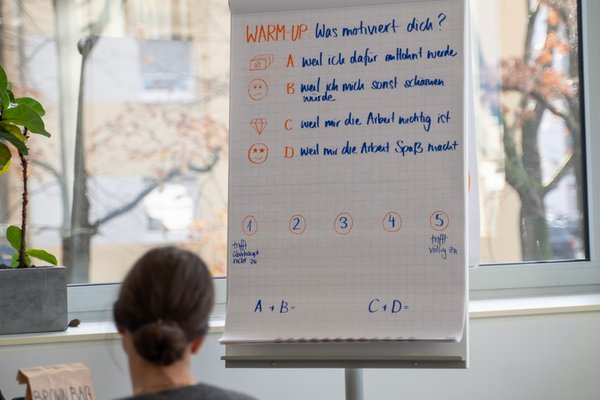 WARM-UP: Was motiviert dich?
A weil ich dafür entlohnt werde
B weil ich mich sonst schämen
würde
C weil mir die Arbeit wichtig ist
D weil mir die Arbeit Spaß macht
1 2 3 4 5
trifft
überhaupt
nicht zu
trifft
völlig zu
A + B =
C + D =
BROWN BAG